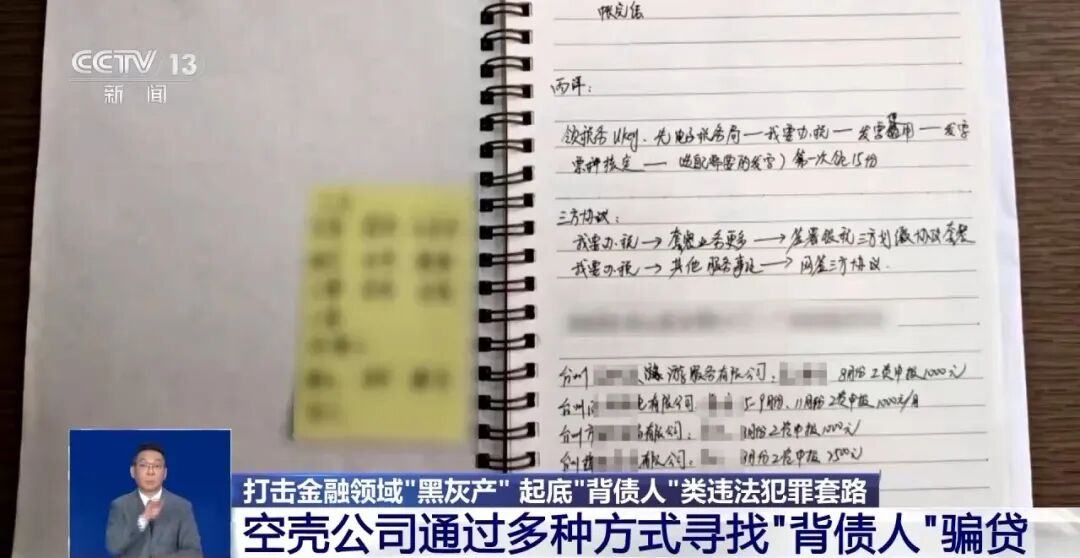 CCTV 13
新闻
三方协议：
我要办税→套餐业务更多→签署银税三方划缴协议套餐
我要办税→其他服务事项→网签三方协议
领税务Ukey.先电子税务局—我要办税—发票使用—发票
票种核定
第一次领15份
台州 游服务有限公司： 8月份工资申报1000元
台州 有限公司 5-9月份、11月份工资申报1000元/月
台州市 有限公司： 8月份工资申报1000元
台州 有限公司： 8月份工资申报2500元
打击金融领域"黑灰产" 起底"背债人"类违法犯罪套路
空壳公司通过多种方式寻找"背债人"骗贷